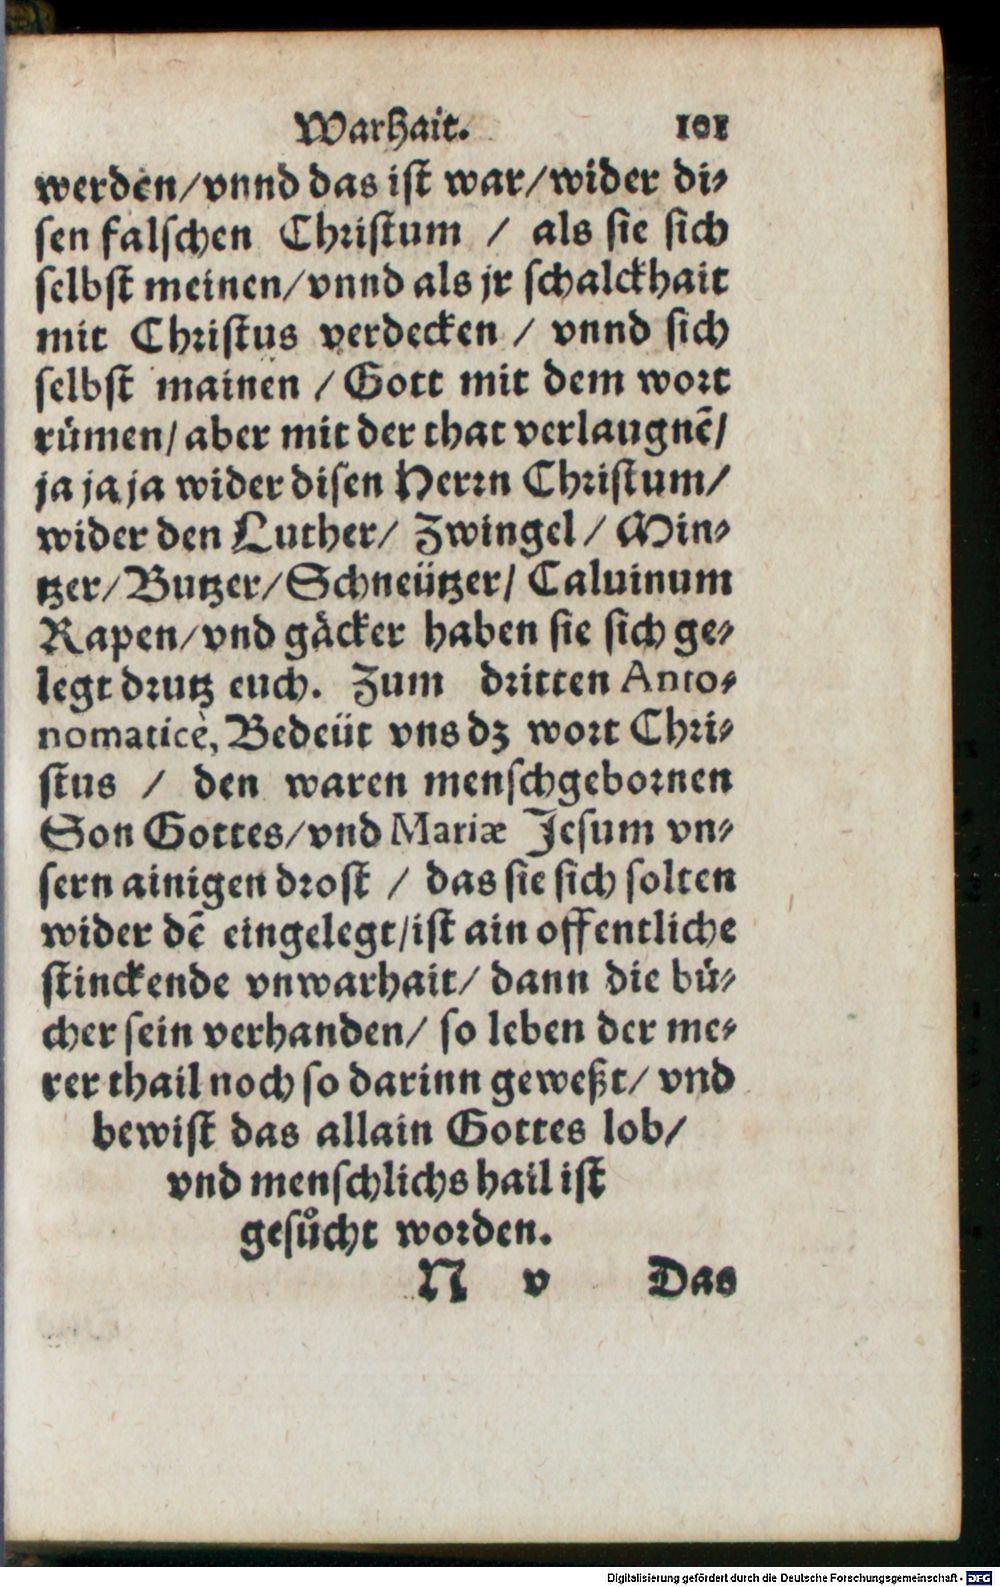 Warhait. 101
werden/vnnd das ist war/wider di⸗
sen falschen Christum / als sie sich
selbst meinen/vnnd als jr schalckhait
mit Christus verdecken / vnnd sich
selbst mainen / Gott mit dem wort
rümen/ aber mit der that verlaugnẽ/
ja ja ja wider disen Herrn Christum/
wider den Luther/ Zwingel / Min⸗
tzer/ Butzer/ Schneützer/ Caluinum
Rapen/vnd gäcker haben sie sich ge⸗
legt drutz euch. Zum dritten Anto⸗
nomaticè, Bedeüt vns dz wort Chri⸗
stus / den waren menschgebornen
Son Gottes/vnd Mariæ Jesum vn⸗
sern ainigen drost / das sie sich solten
wider dẽ eingelegt/ist ain offentliche
stinckende vnwarhait/ dann die bü⸗
cher sein verhanden/ so leben der me⸗
rer thail noch so darinn geweßt/ vnd
bewist das allain Gottes lob/
vnd menschlichs hail ist
gesůcht worden.
N v Das
Digitalisierung gefördert durch die Deutsche Forschungsgemeinschaft - DFG